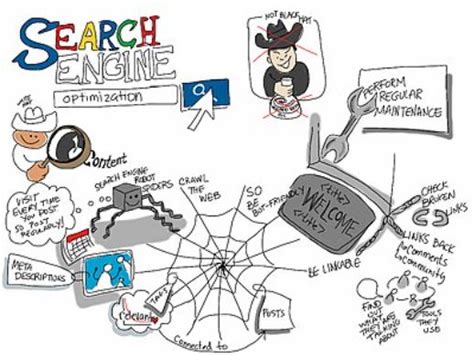 SEARCH
ENGINE
optimization
NOT BLACK HAT
WHITE HAT
PERFORM
REGULAR
MAINTENANCE
Content
SEARCH ENGINE
ROBOT
SPIDERS CRAWL
THE
WEB
SO
BE
BOT-FRIENDLY
WELCOME
VISIT
EVERY TIME
YOU POST
SO POST
REGULARLY!
CHECK
BROKEN
LINKS
LINKS BACK
Comments
Community
BE LINKABLE
META
DESCRIPTIONS
relevant
TAGS
POSTS
Connected to
FIND
OUT
WHAT
ARE
THEY
THINKING
ABOUT
TOOLS
THEY
USE